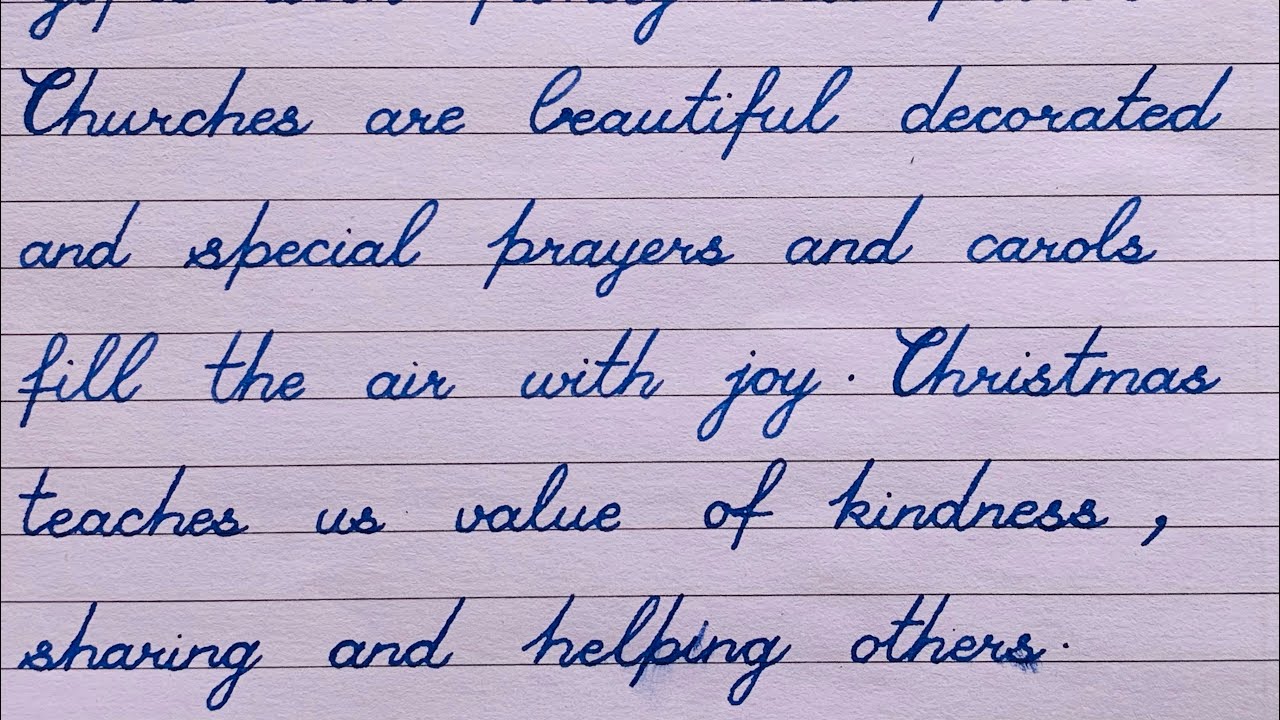 Churches are beautiful decorated
and special prayers and carols
fill the air with joy. Christmas
teaches us value of kindness,
sharing and helping others.